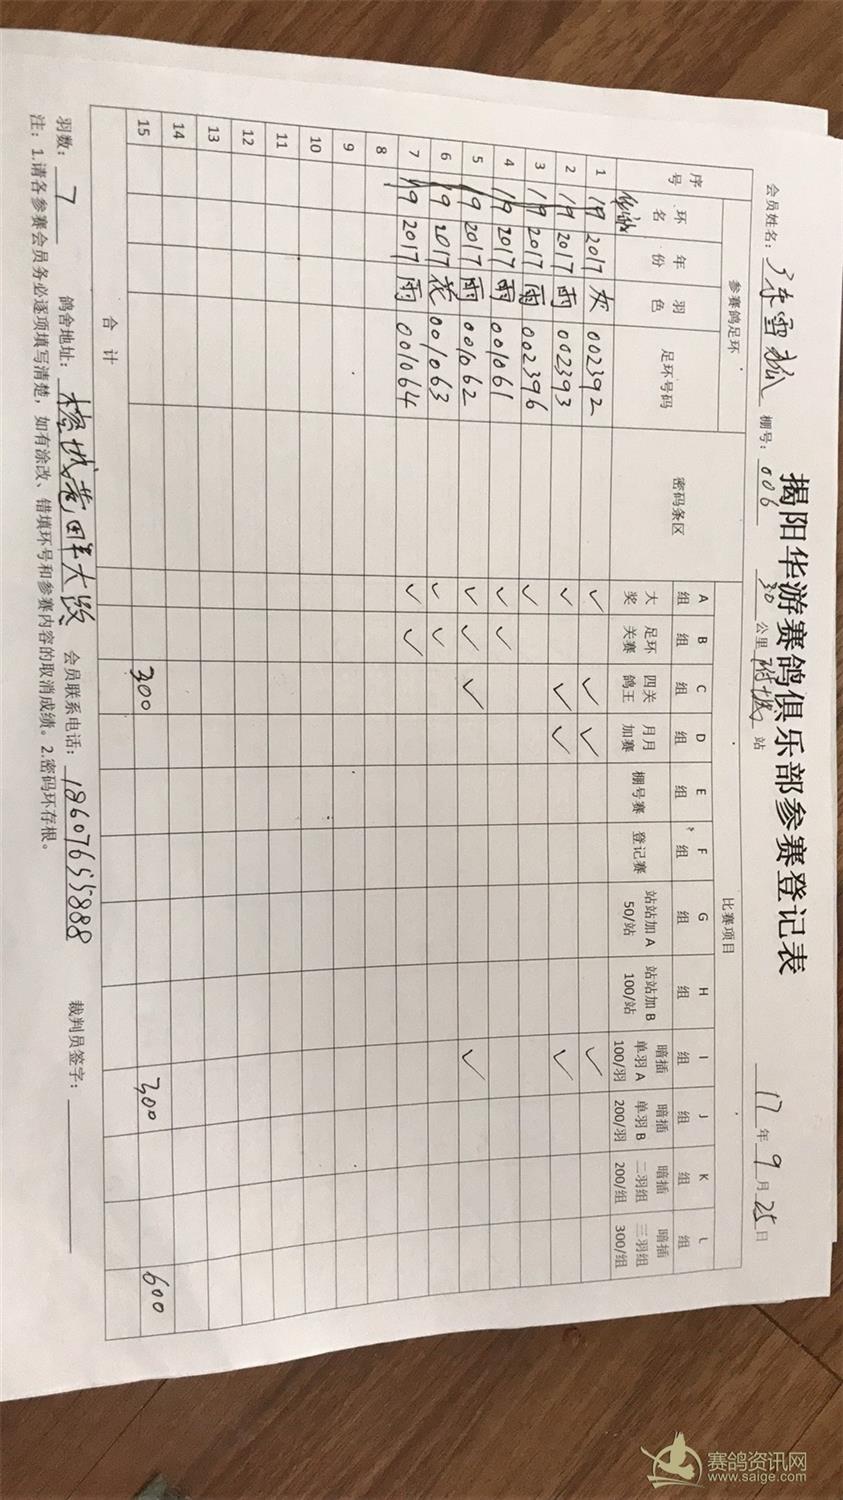 揭阳华游赛鸽俱乐部参赛登记表
会员姓名: 雪 棚号: 006 30 公里 附城 站 17 年 9 月 25 日
序号 参赛鸽足环 密码条区 比赛项目
环名 年份 羽色 足环号码 A组 B组 C组 D组 E组 F组 G组 H组 I组 J组 K组 L组
大奖 足环关赛 四关鸽王 月月加赛 棚号赛 登记赛 站站加A 50/站 站站加B 100/站 暗插单羽A 100/羽 暗插单羽B 200/羽 暗插二羽组 200/组 暗插三羽组 300/组
1 19 2017 灰 002392 ✓ ✓ ✓ ✓
2 19 2017 雨 002393 ✓ ✓ ✓ ✓
3 19 2017 雨 002396 ✓
4 19 2017 雨 001061 ✓ ✓
5 19 2017 雨 001062 ✓ ✓ ✓ ✓
6 19 2017 花 001063 ✓ ✓
7 19 2017 雨 001064 ✓ ✓
8
9
10
11
12
13
14
15 300 300 600
合计
羽数: 7 鸽舍地址: 榕城 会员联系电话: 18607655888 裁判员签字:
注: 1.请各参赛会员务必逐项填写清楚, 如有涂改、错填环号和参赛内容的取消成绩。2.密码环存根。
赛鸽资讯网
www.saige.com